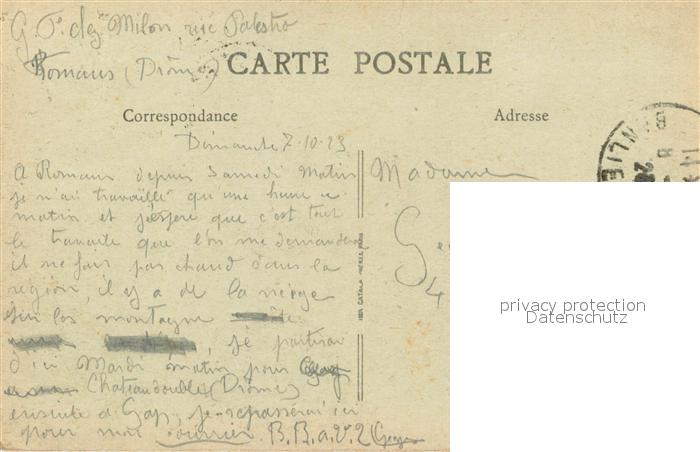 G. P. chez Milon rue Palestro
Romans (Drôme)
CARTE POSTALE
Correspondance
Adresse
Dimanche 7-10-23
A Romans depuis Samedi Matin
je n'ai travaillé qu'une heure ce
matin et j'espère que c'est tout
le travaile que l'on me demandera
il ne fait pas chaud dans la
région il y a de la neige
sur les montagne
je partirai
d'ici Mardi matin pour
Chateaudouble (Drôme)
ensuite a Gap, je repasserai ici
pour mon courrier B. B. a V. 2 Georges
Madame
Ge
4
privacy protection
Datenschutz